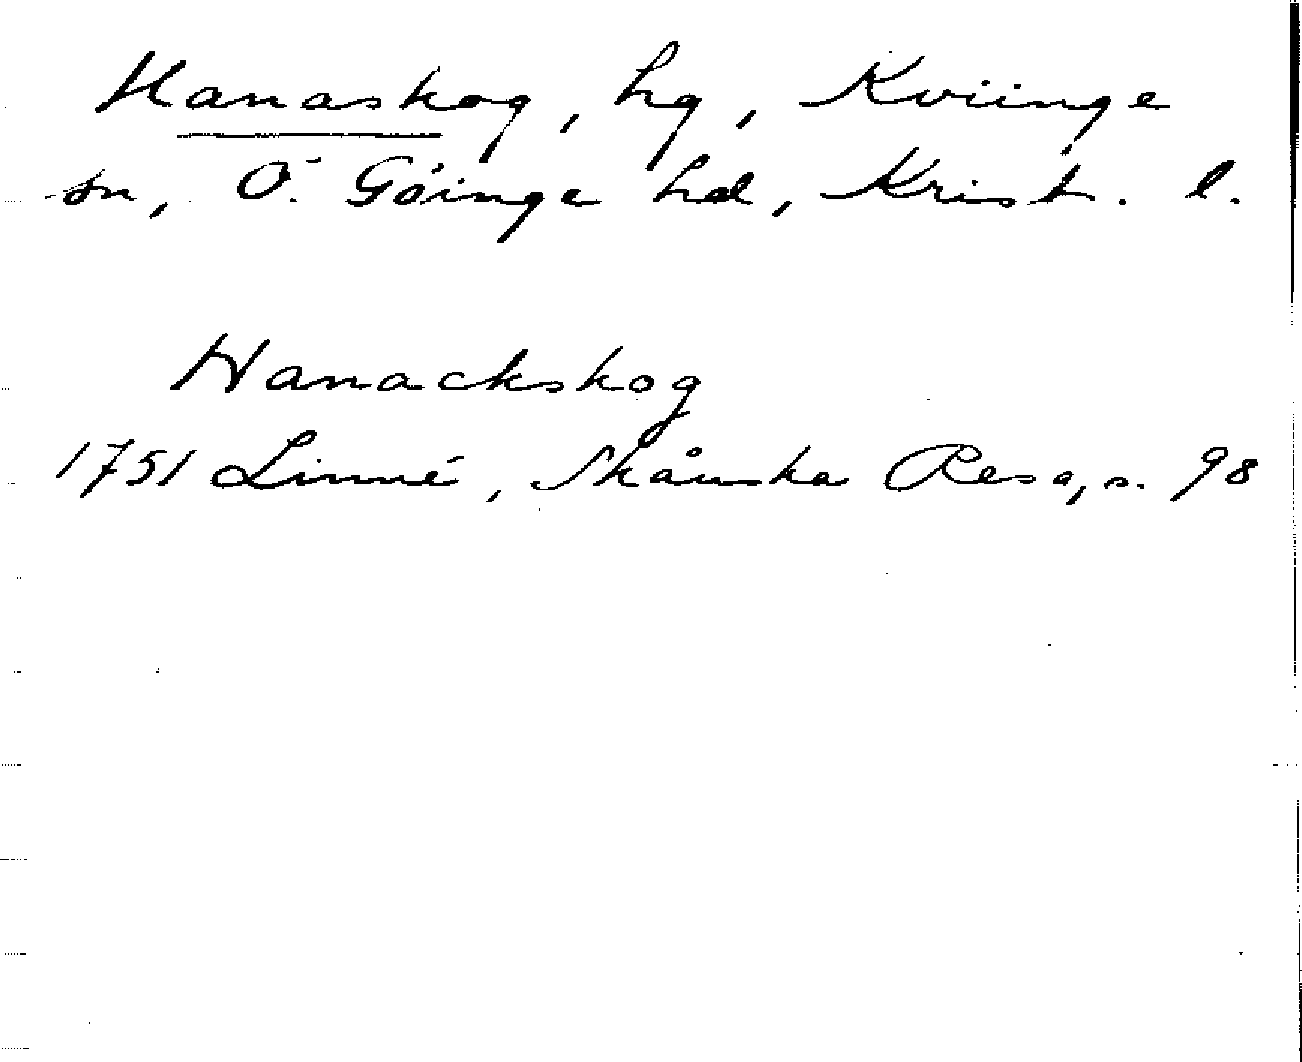 Hanaskog, hg, Kviinge
sn, Ö. Göinge hd, Krist. l.
Hanackskog
1751 Linné, Skånska Resa, s. 98